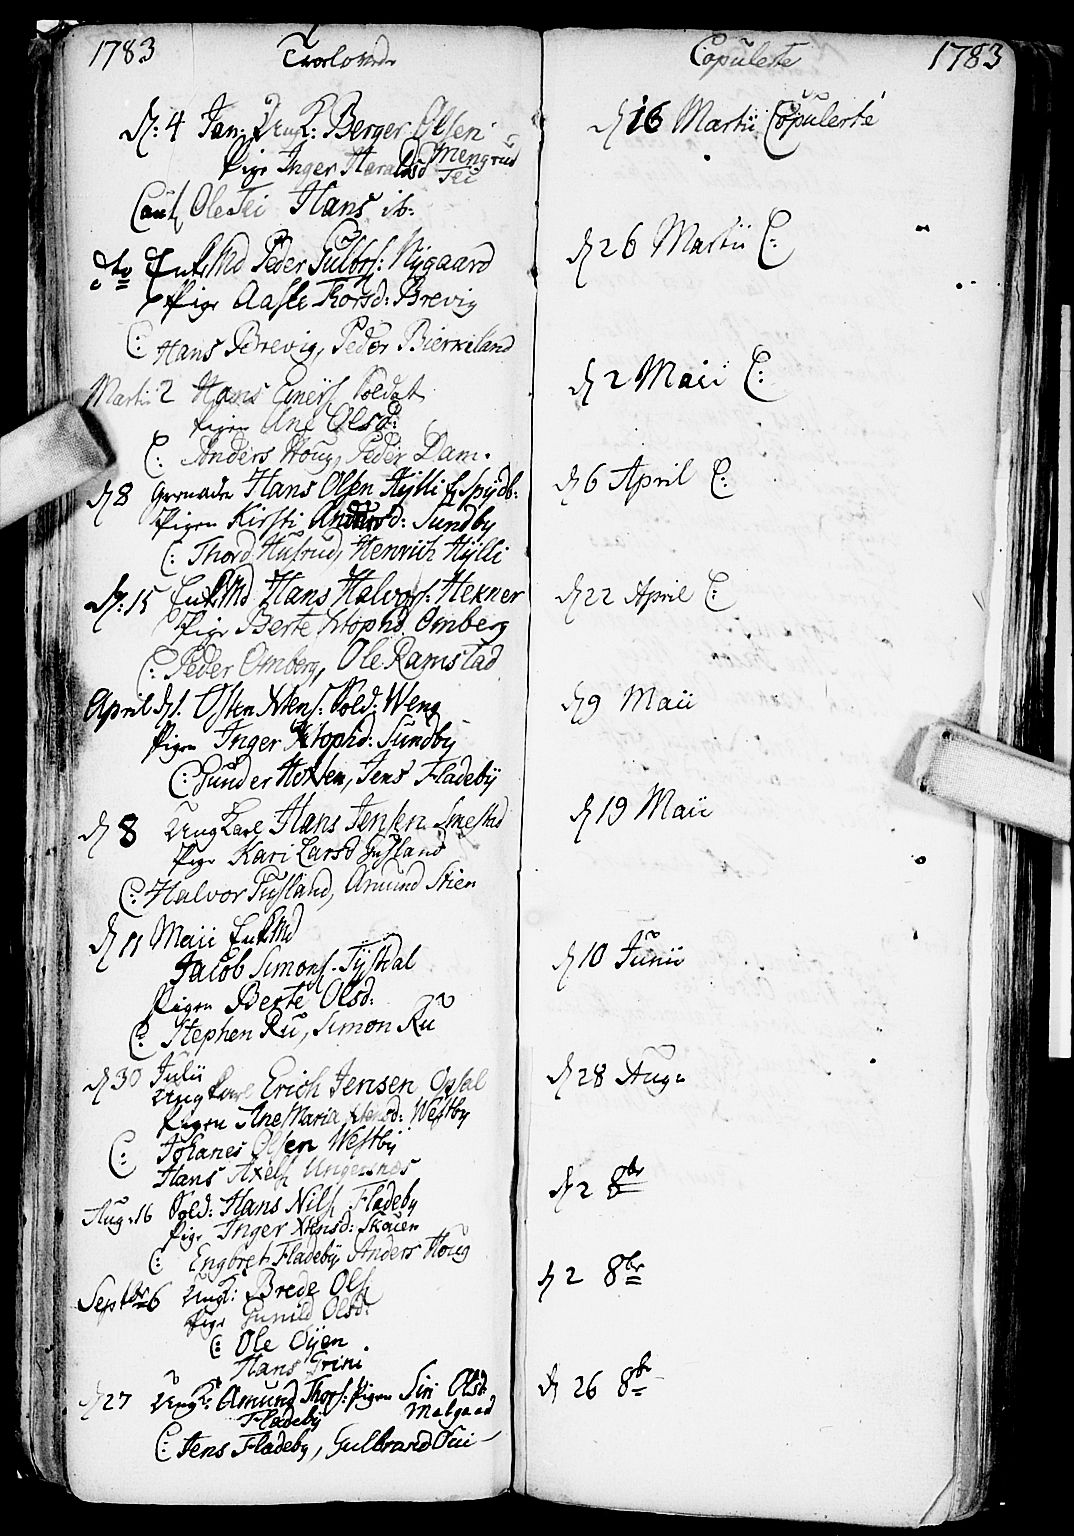 1783 Trolovede
d: 4 Jan: UngK: Berger Olsen
Pige Inger Haraldsd Mengrud
Tei
Caut Ole Tei Hans ib:
dto EnkeMd Peder Gulbrs: Nygaard
Pige Aasle Thorsd: Brevig
C: Hans Brevig, Peder Bierkeland
Martii 2 Hans Einers Soldat
Pigen Ane Olsd:
C: Anders Houg, Peder Dam.
d 8 Grenader Hans Olsen Hÿlli Espÿdb:
Pigen Kirsti Andersd: Sundby
C: Thord Hutrud, Henrich Hÿlli
d: 15 EnkMd Hans Halvors: Hexner
Pige Berte Xtophd. Omberg
C: Peder Omberg, Ole Ramstad
April d 1. Osten Xtens: Sold: Weng
Pigen Inger Xtophd: Sundby
C: Gunder Hexten, Jens Fladebÿ
d 8 Ung Karl Hans Jensen Smestad
Pige Kari Larsd Fusland
C: Halvor Fusland, Amund Stien
d 11 Maii EnkMd
Jacob Simons. Tÿskal
Pigen Berte Olsd:
C: Stephen Ru, Simon Ru
d 30 Julii
Ung Karl Erich Jensen Opsal
Pigen Ane Maria Hansd: Westby
C: Johanes Olsen Westbÿ
Hans Axels Ungersnæs
Aug. 16 Sold: Hans Nils Fladeby
Pige Inger Xtensd: Skauen
C: Engbret Fladebÿ Anders Houg
Septbr 6 UngK: Brede Ols
Pige Gunild Olsd:
C: Ole Oÿen
Hans Grini
d 27 UngK: Amund Thors: Pigen Siri Olsd
Fladebÿ Malgaad
C: Jens Fladeby, Gulbrand Tui
Copulerte 1783
d 16 Martii Copulerte
d 26 Martii C:
d 2 Maii C:
d 6 April C:
d 22 April C:
d 9 Maii
d 19 Maii
d 10 Junii
d 28 Aug:
d 2 8br
d 2 8br
d 26 8br